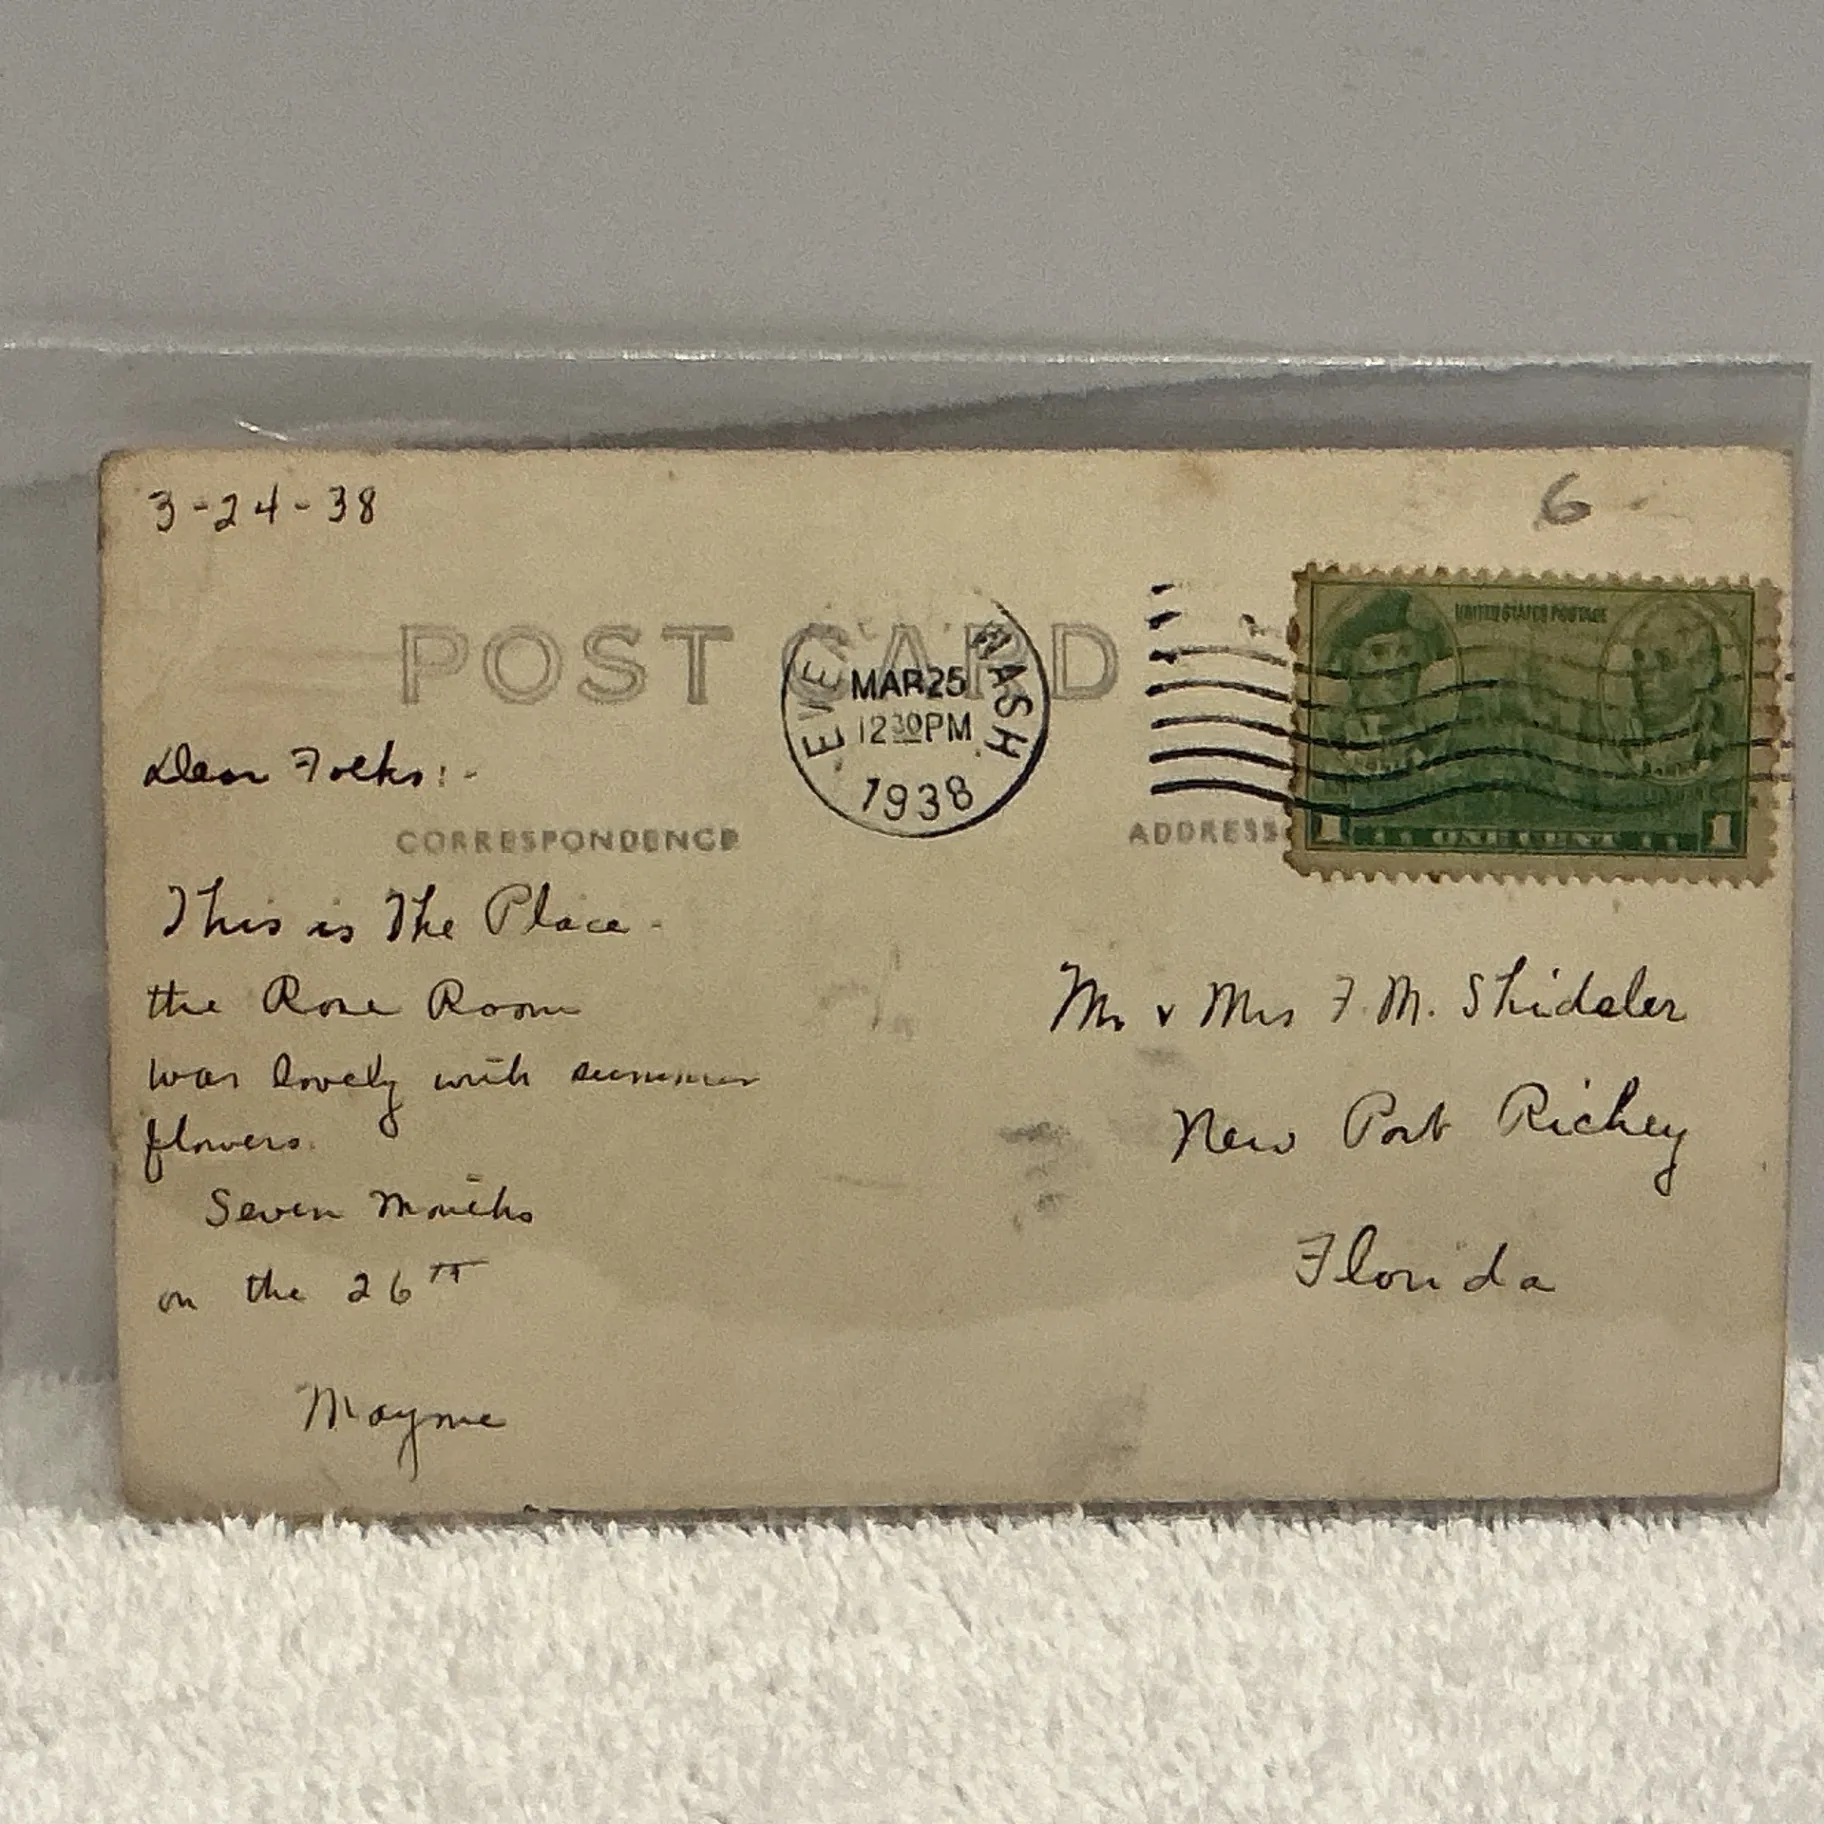 3-24-38
6
POST CARD
EVE WASH
MAR 25
12 30 PM
1938
UNITED STATES POSTAGE
1 ONE CENT 1
Dear Folks:-
CORRESPONDENCE
ADDRESS
This is The Place-
the Rose Room
was lovely with summer
flowers.
Seven Months
on the 26TH
Mayme
Mr & Mrs F. M. Shideler
New Port Richey
Florida